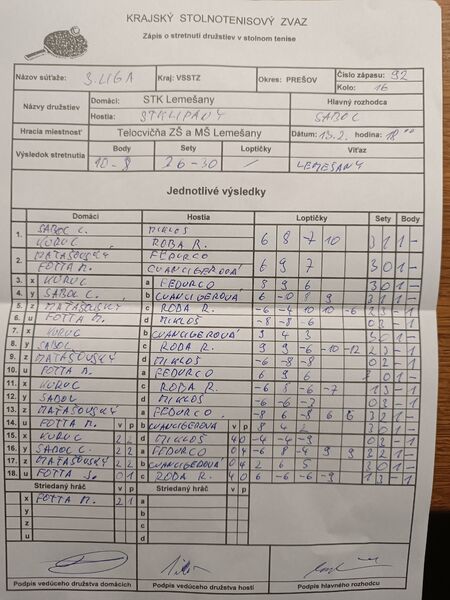 KRAJSKÝ STOLNOTENISOVÝ ZVAZ
Zápis o stretnutí družstiev v stolnom tenise
Názov súťaže: 3. LIGA Kraj: VSSTZ Okres: PREŠOV Číslo zápasu: 92
Kolo: 16
Názvy družstiev Domáci: STK Lemešany Hlavný rozhodca
Hostia: STK LIPANY SABOL
Hracia miestnosť Telocvičňa ZŠ a MŠ Lemešany Dátum: 13.2. hodina: 18 00
Výsledok stretnutia Body Sety Loptičky Víťaz
10-8 36-30 / LEMEŠANY
Jednotlivé výsledky
Domáci Hostia Loptičky Sety Body
1. SABOL C. MIKLOŠ
KURUC ROBA R. 6 8 7 10 3 1 1 -
2. MATAŠOVSKÝ FEDURCO
FOTTA M. CVANCIGEROVÁ 6 9 7 3 0 1 -
3. x KURUC a FEDURCO 8 9 6 3 0 1 -
4. y SABOL C. b CVANCIGEROVÁ 3 1 1 -
5. z MATAŠOVSKÝ c ROBA R. -6 -4 10 10 -6 2 3 - 1
6. u FOTTA M. d MIKLOŠ -8 -8 -6 0 3 - 1
7. x KURUC b CVANCIGEROVÁ 3 4 3 3 0 1 -
8. y SABOL c ROBA R. 9 9 -6 -10 -12 2 3 - 1
9. z MATAŠOVSKÝ d MIKLOŠ -6 -8 -8 0 3 - 1
10. u FOTTA M. a FEDURCO 6 9 6 3 0 1 -
11. x KURUC c ROBA R. -6 5 -6 -7 1 3 - 1
12. y SABOL d MIKLOŠ -6 -6 -3 0 3 - 1
13. z MATAŠOVSKÝ a FEDURCO -8 6 -8 6 6 3 2 1 -
14. u FOTTA M. v p b CVANCIGEROVÁ v p 8 4 2 3 0 1 -
15. x KURUC 2 2 d MIKLOŠ 4 0 -4 -4 -9 0 3 - 1
16. y SABOL C. 2 2 a FEDURCO 0 4 -6 8 -4 9 9 3 2 1 -
17. z MATAŠOVSKÝ 2 2 b CVANCIGEROVÁ 0 4 2 6 5 3 0 1 -
18. u FOTTA 0 1 c ROBA R. 4 0 6 -6 -6 -9 1 3 - 1
Striedaný hráč v p Striedaný hráč v p
x FOTTA M. 2 1 a
y b
z c
u d
Podpis vedúceho družstva domácich Podpis vedúceho družstva hostí Podpis hlavného rozhodcu